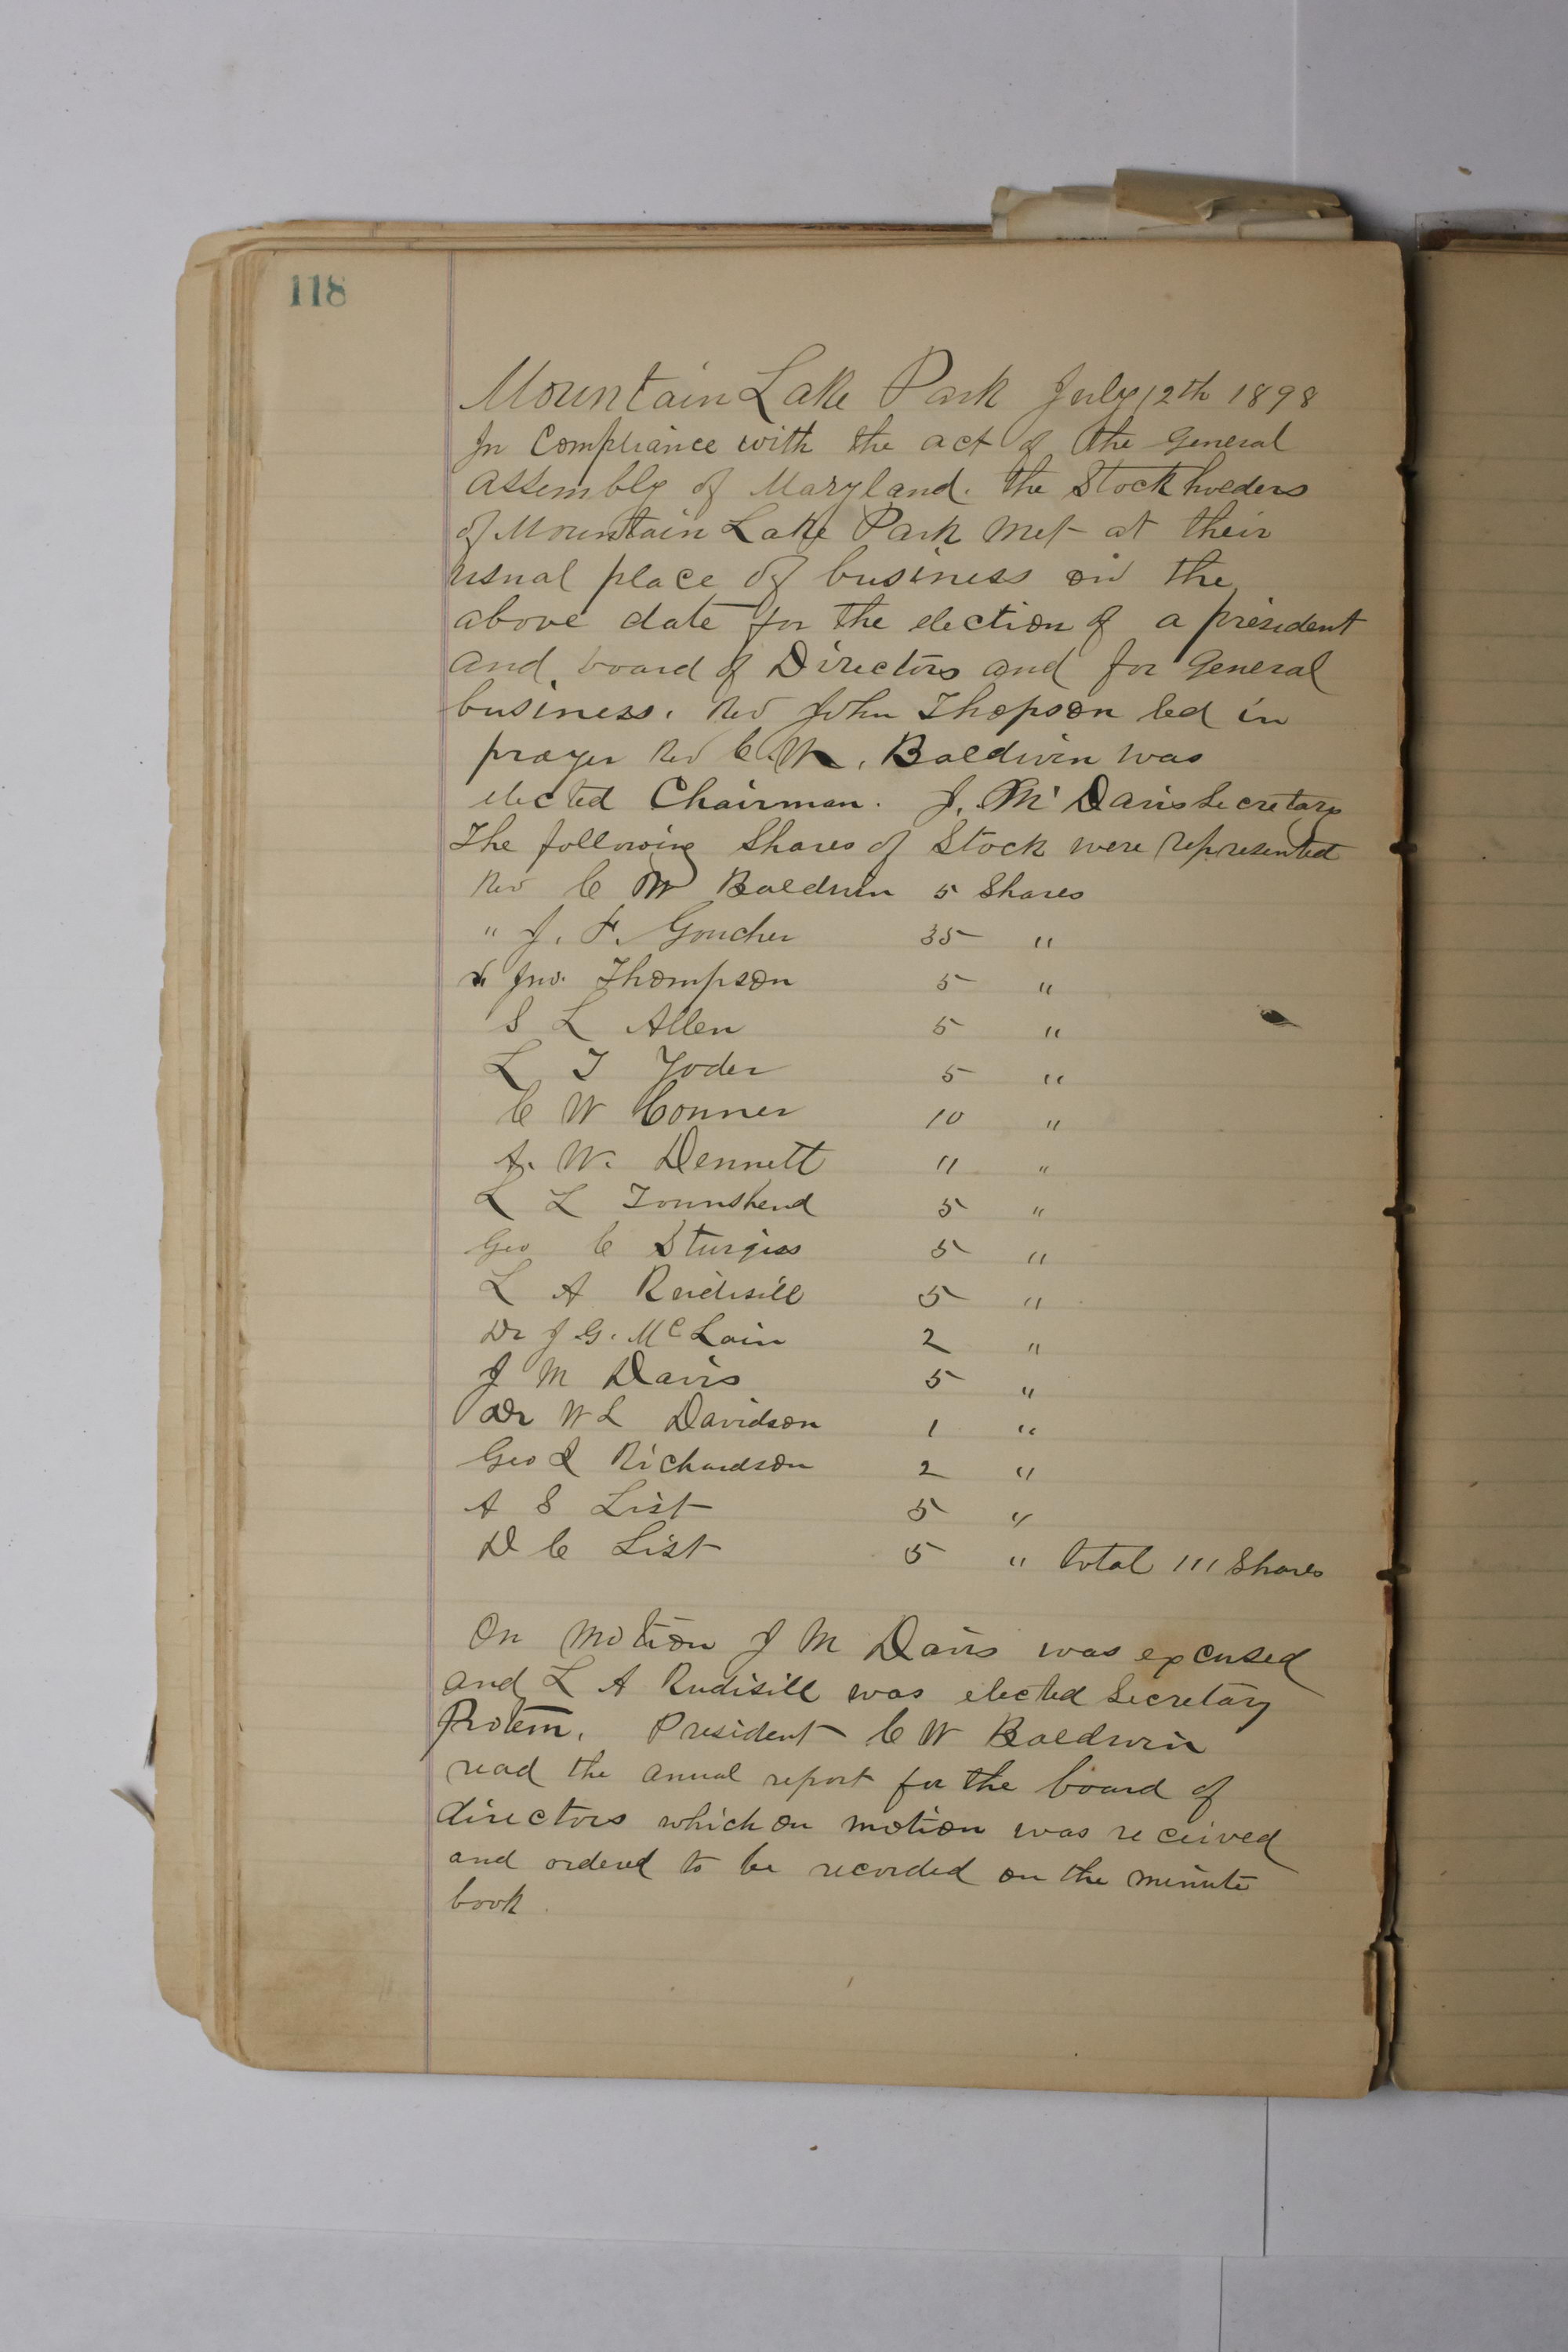 118
Mountain Lake Park July 12th 1898
In Compliance with the act of the General
Assembly of Maryland. the Stockholders
of Mountain Lake Park met at their
usual place of business on the
above date for the election of a president
and board of Directors and for General
business. Rev John Thopson led in
prayer Rev C. W. Baldwin was
elected Chairman. J. M. Davis Secretary
The following Shares of Stock were represented
Rev C W Baldwin 5 Shares
" J. F. Goucher 35 "
" Jno. Thompson 5 "
S L Allen 5 "
L T Yoder 5 "
C W Conner 10 "
A. W. Dennett 11 "
L L Townshend 5 "
Geo C Sturgiss 5 "
L A Rudisill 5 "
Dr J G. McLain 2 "
J M Davis 5 "
Dr W L Davidson 1 "
Geo L Richardson 2 "
A S List 5 "
D C List 5 " total 111 Shares
On motion J M Davis was excused
and L A Rudisill was elected Secretary
Protem. President C W Baldwin
read the annual report for the board of
directors which on motion was received
and ordered to be recorded on the minute
book.